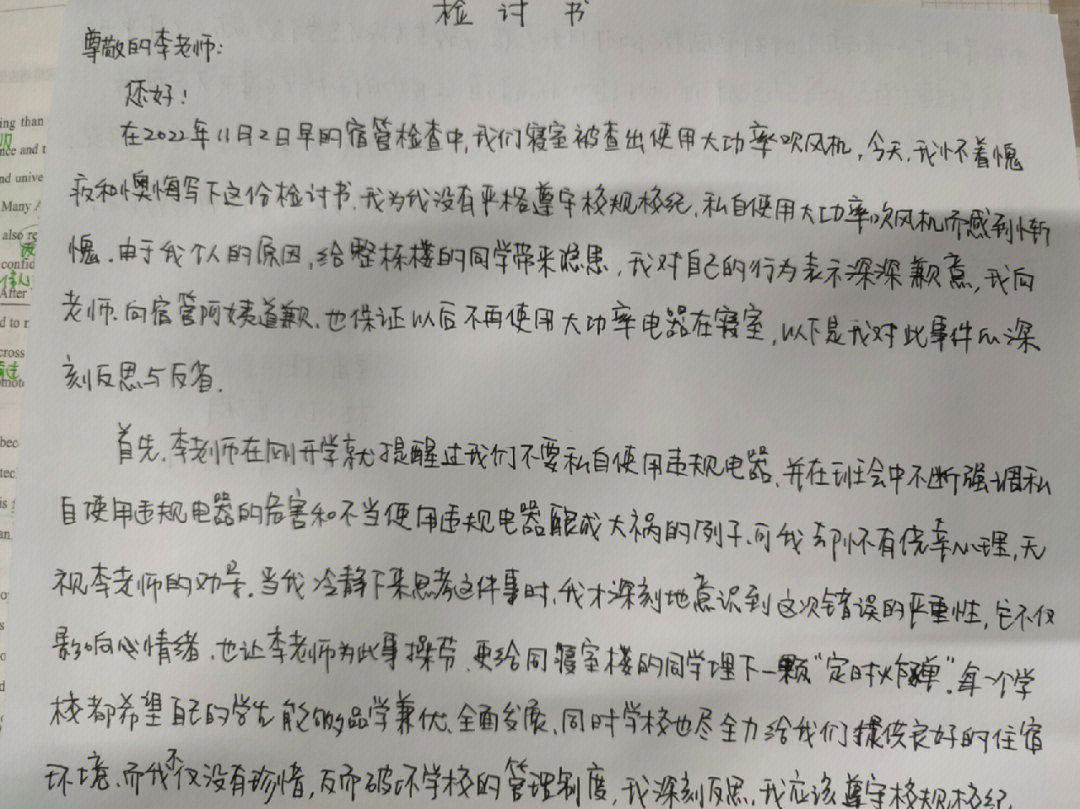 检讨书
尊敬的李老师:
您好!
在2022年11月2日早的宿管检查中,我们寝室被查出使用大功率吹风机,今天,我怀着愧
疚和懊悔写下这份检讨书.我为我没有严格遵守校规校纪,私自使用大功率吹风机而感到惭
愧.由于我个人的原因,给整栋楼的同学带来隐患,我对自己的行为表示深深歉意,我向
老师.向宿管阿姨道歉.也保证以后不再使用大功率电器在寝室,以下是我对此事件的深
刻反思与反省.
首先.李老师在刚开学就提醒过我们不要私自使用违规电器,并在班会中不断强调私
自使用违规电器的危害和不当使用违规电器酿成大祸的例子.可我却怀有侥幸心理,无
视李老师的劝导.当我冷静下来思考这件事时,我才深刻地意识到这次错误的严重性,它不仅
影响心情绪.也让李老师为此事操劳.更给同寝室楼的同学埋下一颗“定时炸弹”.每一个学
校都希望自己的学生能够品学兼优.全面发展.同时学校也尽全力给我们提供良好的住宿
环境.而我不仅没有珍惜,反而破坏学校的管理制度,我深刻反思,我应该遵守校规校纪
ing than
nce and t
nd unive
Many
also re
confid
After
d to r
cross
bec
tec
is
an